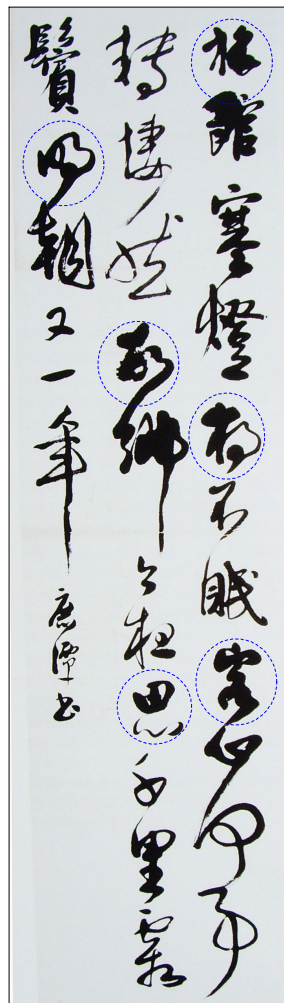 旅館寒燈獨不眠客心何事
轉悽然故鄉今夜思千里霜
鬢明朝又一年書